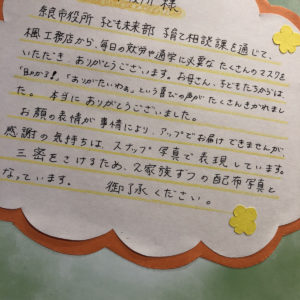 役所 様
奈良市役所 子ども未来部 子育て相談課を通じて、
楓工務店から、毎日の就労や通学に必要な たくさんのマスクを
いただき、ありがとうございます。お母さん、子どもたちからは
「助かる！」「ありがたいわぁ」という喜びの声が たくさんきかれまし
た。 本当に ありがとうございました。
お顔の表情が事情により、アップでお届けできませんが、
感謝の気持ちは、スナップ写真で表現しています。
三密をさけるため、2家族ずつの配布写真と
なっています。 御了承ください。